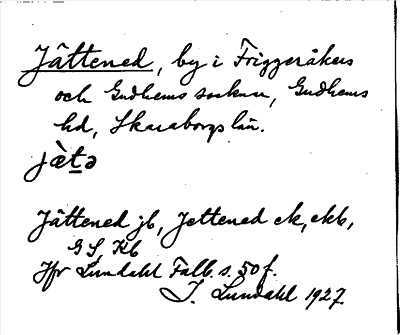 Jättened, by i Friggeråkers
och Gudhems socknar, Gudhems
hd, Skaraborgs län.
jæ̀tə
Jättened jb, Jettened ek, ekb,
GS, Kb
Jfr Lundahl Falb. s. 50 f.
I. Lundahl 1927.